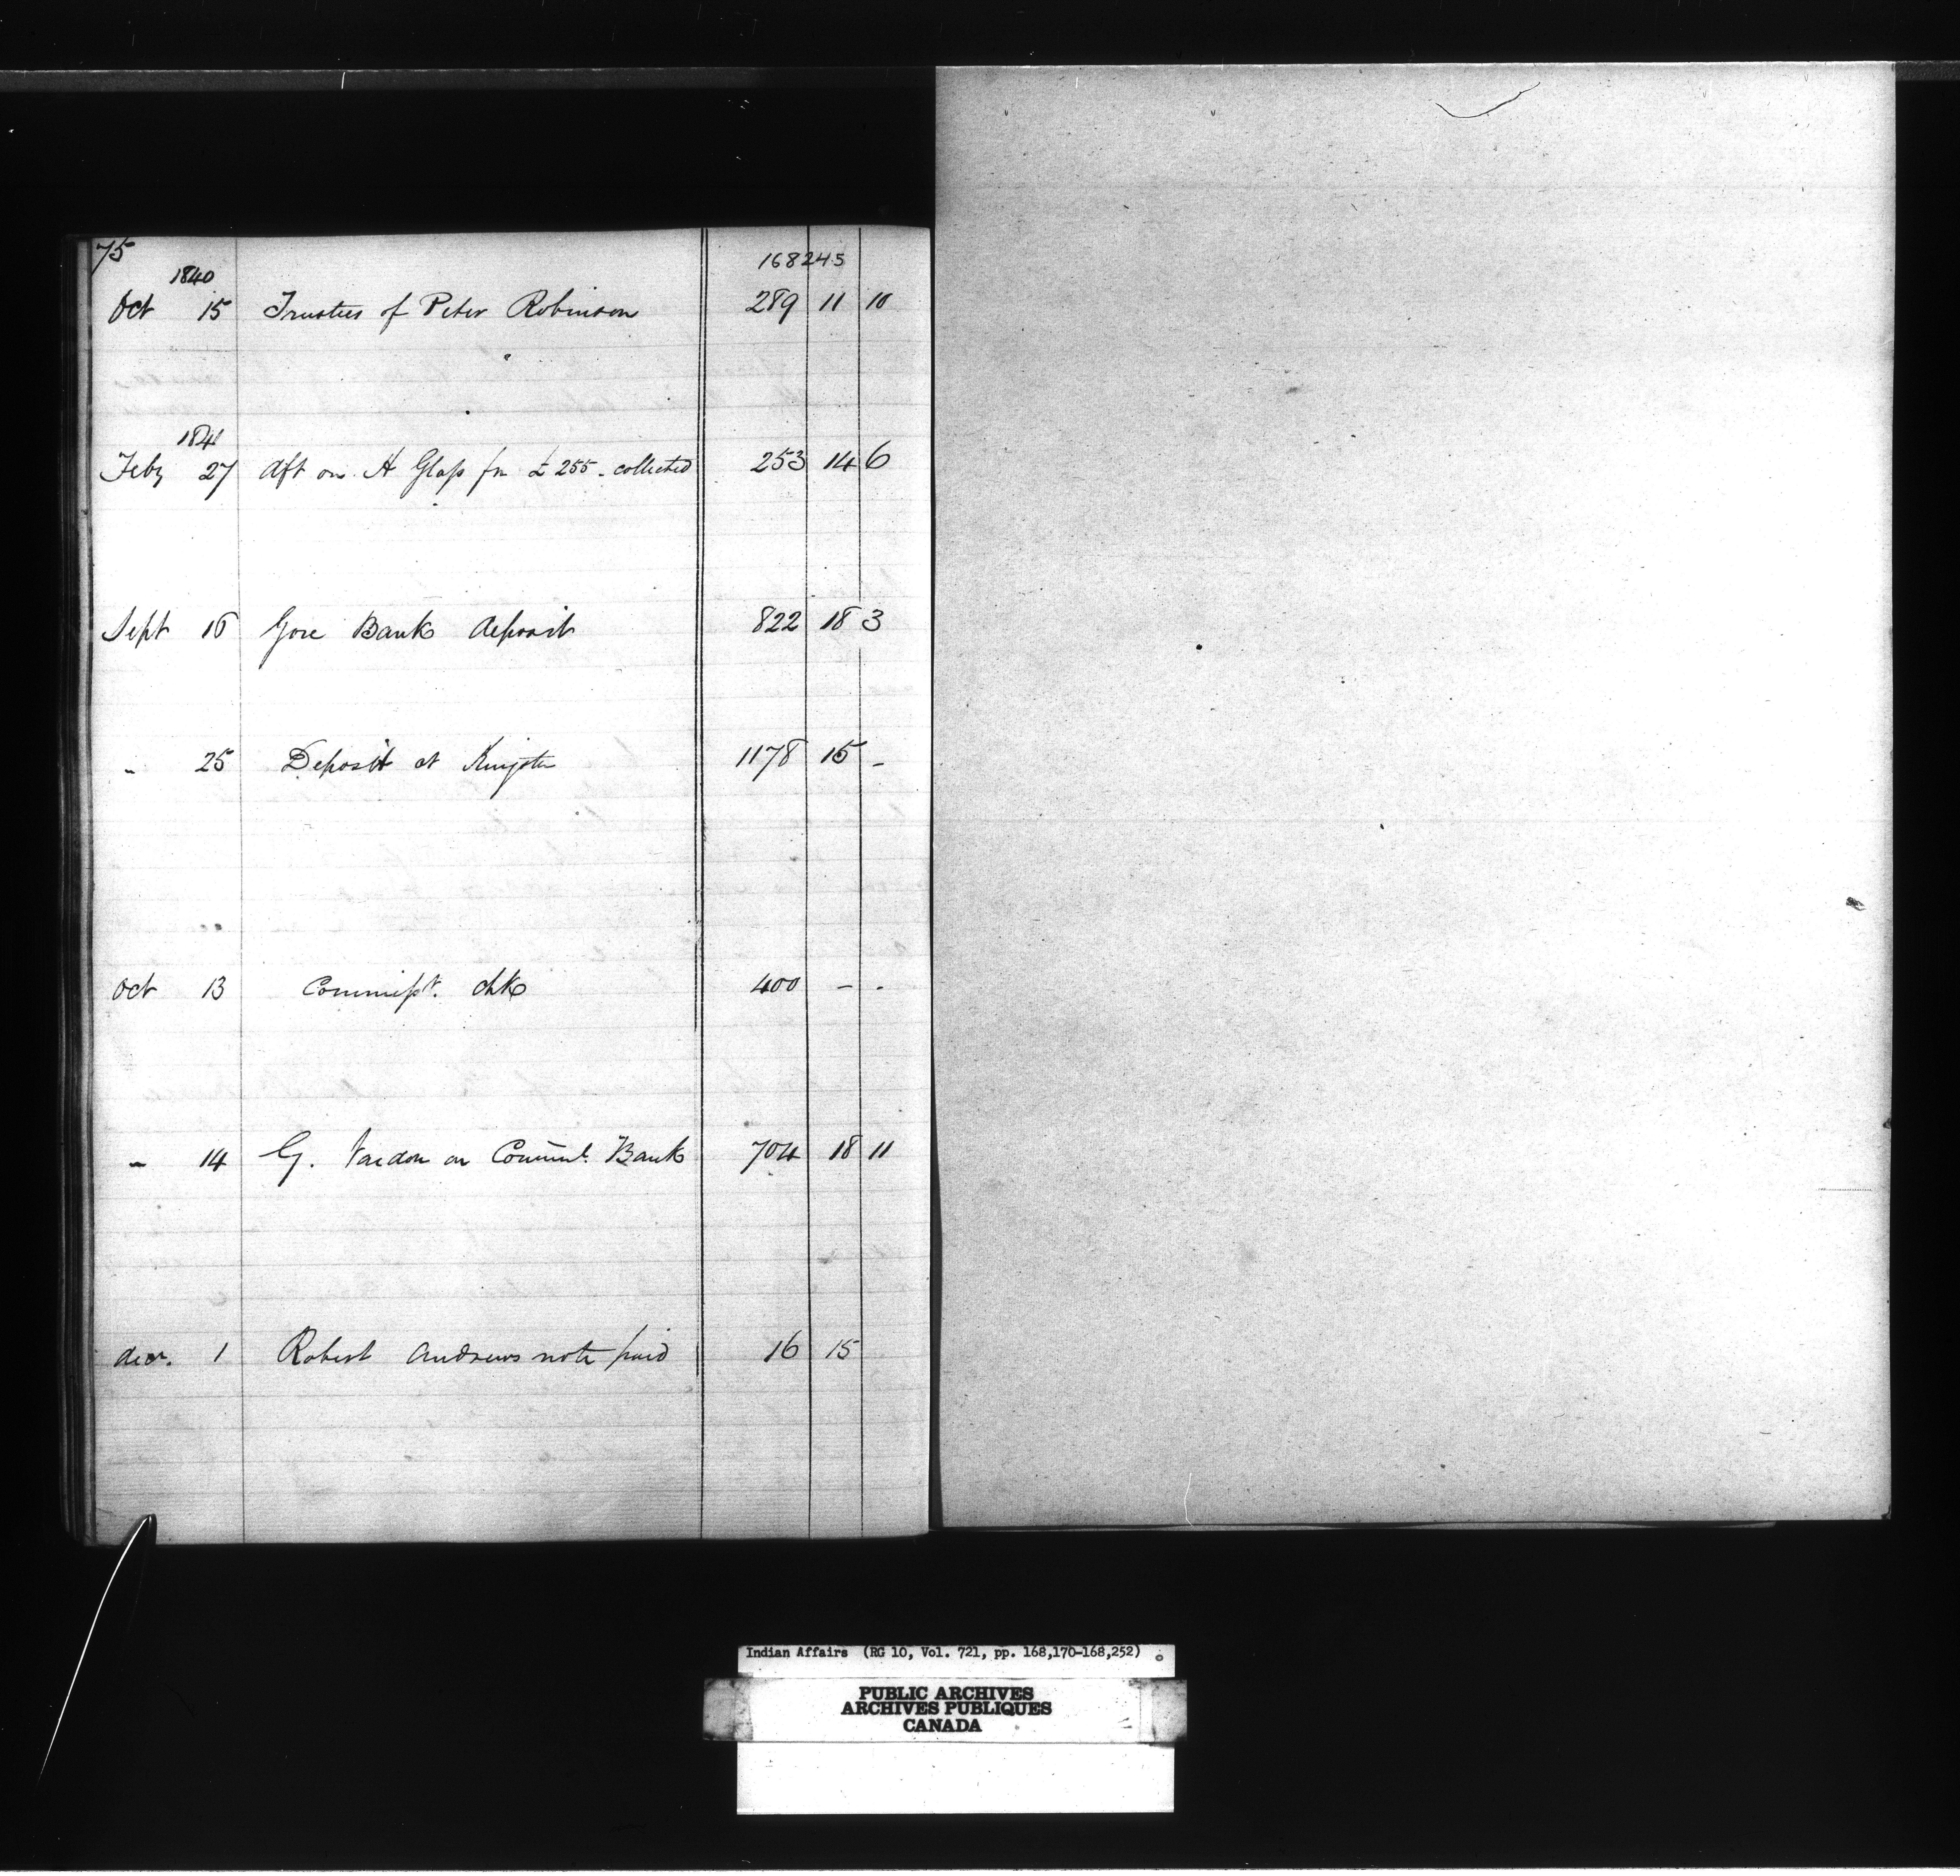 75
168245
1840
Oct 15 Trustees of Peter Robinson 289 11 10
1841
Feby 27 dft on H Glass for £255 - collected 253 14 6
Sept 16 Gore Bank deposit 822 18 3
" 25 Deposit at Kingston 1178 15 -
Oct 13 Commisst. chk 400 - -
" 14 G. Vardon on Comml. Bank 704 18 11
decr. 1 Robert Andrews note paid 16 15
Indian Affairs (RG 10, Vol. 721, pp. 168,170-168,252)
PUBLIC ARCHIVES
ARCHIVES PUBLIQUES
CANADA